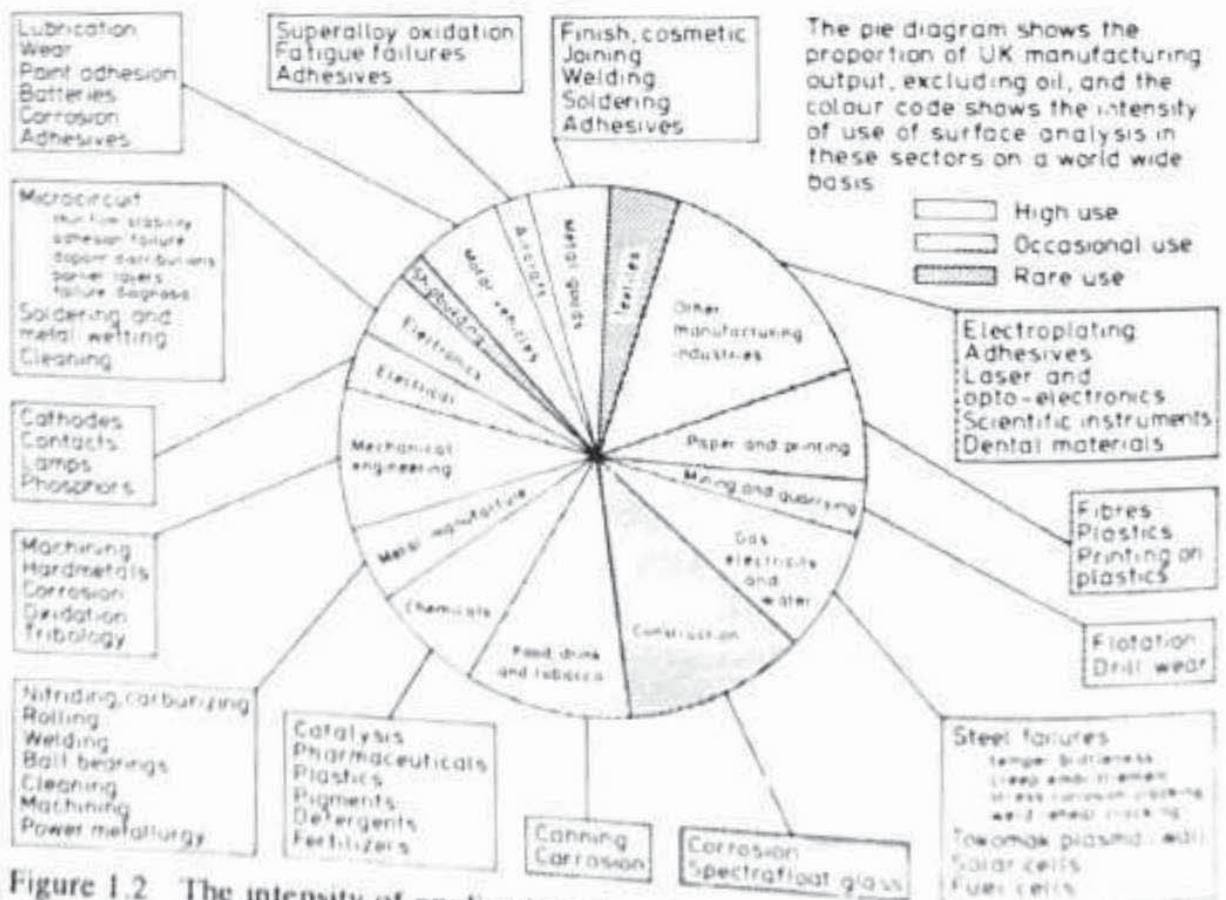 Lubrication
Wear
Paint adhesion
Batteries
Corrosion
Adhesives
Superalloy oxidation
Fatigue failures
Adhesives
Finish, cosmetic
Joining
Welding
Soldering
Adhesives
The pie diagram shows the
proportion of UK manufacturing
output, excluding oil, and the
colour code shows the intensity
of use of surface analysis in
these sectors on a world wide
basis
High use
Occasional use
Rare use
Microcircuit
thin film stability
adhesion failure
dopant distributions
barrier layers
failure diagnosis
Soldering and
metal wetting
Cleaning
Cathodes
Contacts
Lamps
Phosphors
Machining
Hardmetals
Corrosion
Oxidation
Tribology
Nitriding, carburizing
Rolling
Welding
Ball bearings
Cleaning
Machining
Power metallurgy
Catalysis
Pharmaceuticals
Plastics
Pigments
Detergents
Fertilizers
Canning
Corrosion
Corrosion
Spectrafloat glass
Steel failures
temper brittleness
creep embrittlement
stress corrosion cracking
weld reheat cracking
Tokomak plasma wall
Solar cells
Fuel cells
Flotation
Drill wear
Fibres
Plastics
Printing on
plastics
Electroplating
Adhesives
Laser and
opto-electronics
Scientific instruments
Dental materials
Shipbuilding
Motor vehicles
Aircraft
Metal goods
Textiles
Other
manufacturing
industries
Paper and printing
Mining and quarrying
Gas
electricity
and
water
Construction
Food, drink
and tobacco
Chemicals
Metal manufacture
Mechanical
engineering
Electrical
Electronics
Figure 1.2 The intensity of